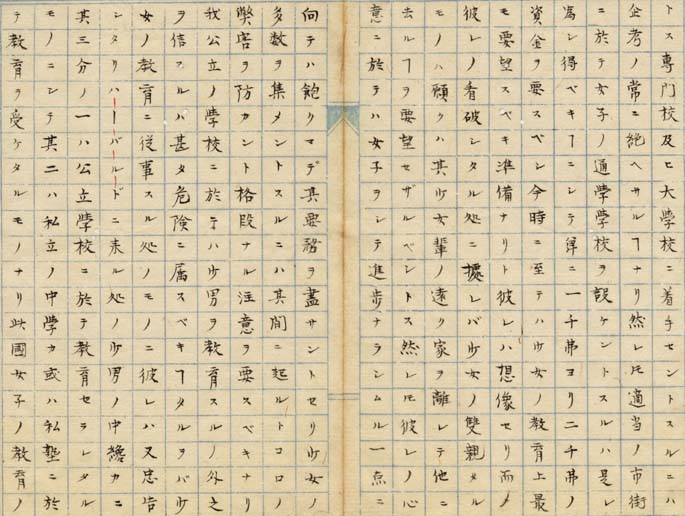 トス専門校及ヒ大學校ニ着手セントスルニハ
企考ノ常ニ絶ヘサルヿナリ然レ𪜈適当ノ市街
ニ於テ女子ノ通學學校ヲ設ケントスルハ是レ
為シ得ベキヿニシテ淂ニ一千弗ヨリ二千弗ノ
資金ヲ要スベシ今時ニ至テハ少女ノ教育上最
モ要望スベキ準備ナリト彼レハ想像セリ而メ
彼レノ看破シタル処ニ據レバ少女ノ雙親タル
モノハ願クハ其少女輩ノ遠ク家ヲ離レテ他ニ
去ルヿヲ要望セザルベシトス然レ𪜈彼レノ心
意ニ於テハ女子ヲシテ進歩ナラシムル一点ニ
向テハ飽リマデ其要務ヲ盡サントセリ少女ノ
多数ヲ集メントスルニハ其間ニ起ルトコロノ
弊害ヲ防カント格段ナル注意ヲ要スベキナリ
我公立ノ學校ニ於テハ少男ヲ教育スルノ外之
ヲ信スルハ甚タ危険ニ属スベキヿタルヲバ少
女ノ教育ニ従事スル処ノモノニ彼レハ又忠告
シタリハーバルドニ来ル処ノ少男ノ中纔カニ
其三分ノ一ハ公立學校ニ於テ教育セラレタル
モノニシテ其二ハ私立ノ中学カ或ハ私塾ニ於
テ教育ヲ受ケタルモノナリ此國女子ノ教育ノ